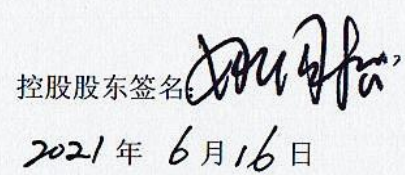 控股股东签名:
2021年 6月16日